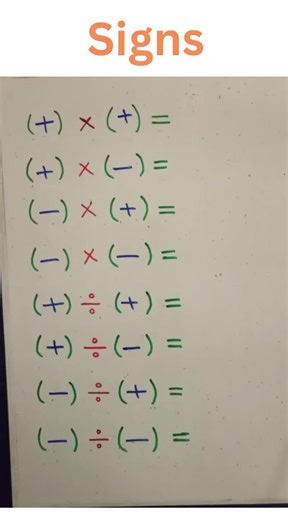 Signs
(+) × (+) =
(+) × (−) =
(−) × (+) =
(−) × (−) =
(+) ÷ (+) =
(+) ÷ (−) =
(−) ÷ (+) =
(−) ÷ (−) =